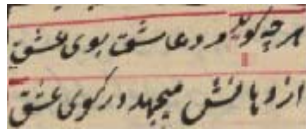 هر چه گوید مرد عاشق بوی عشق
از دهانش میجهد در کوی عشق